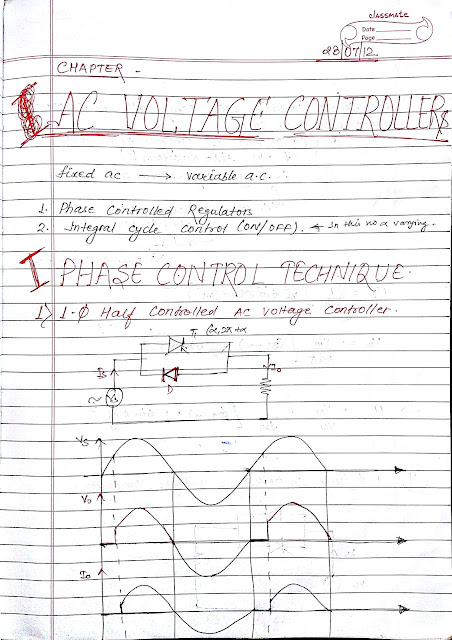 classmate
Date
Page
28/07/12
CHAPTER -
AC VOLTAGE CONTROLLERS
fixed ac → variable a.c.
1. Phase Controlled Regulators
2. Integral cycle control (ON/OFF). ← In this no α varying.
I PHASE CONTROL TECHNIQUE.
1> 1-Φ Half Controlled AC Voltage Controller.
T1 (α, 2π+α
Is
Io
D
~ Vs
Vs
Vo
Io